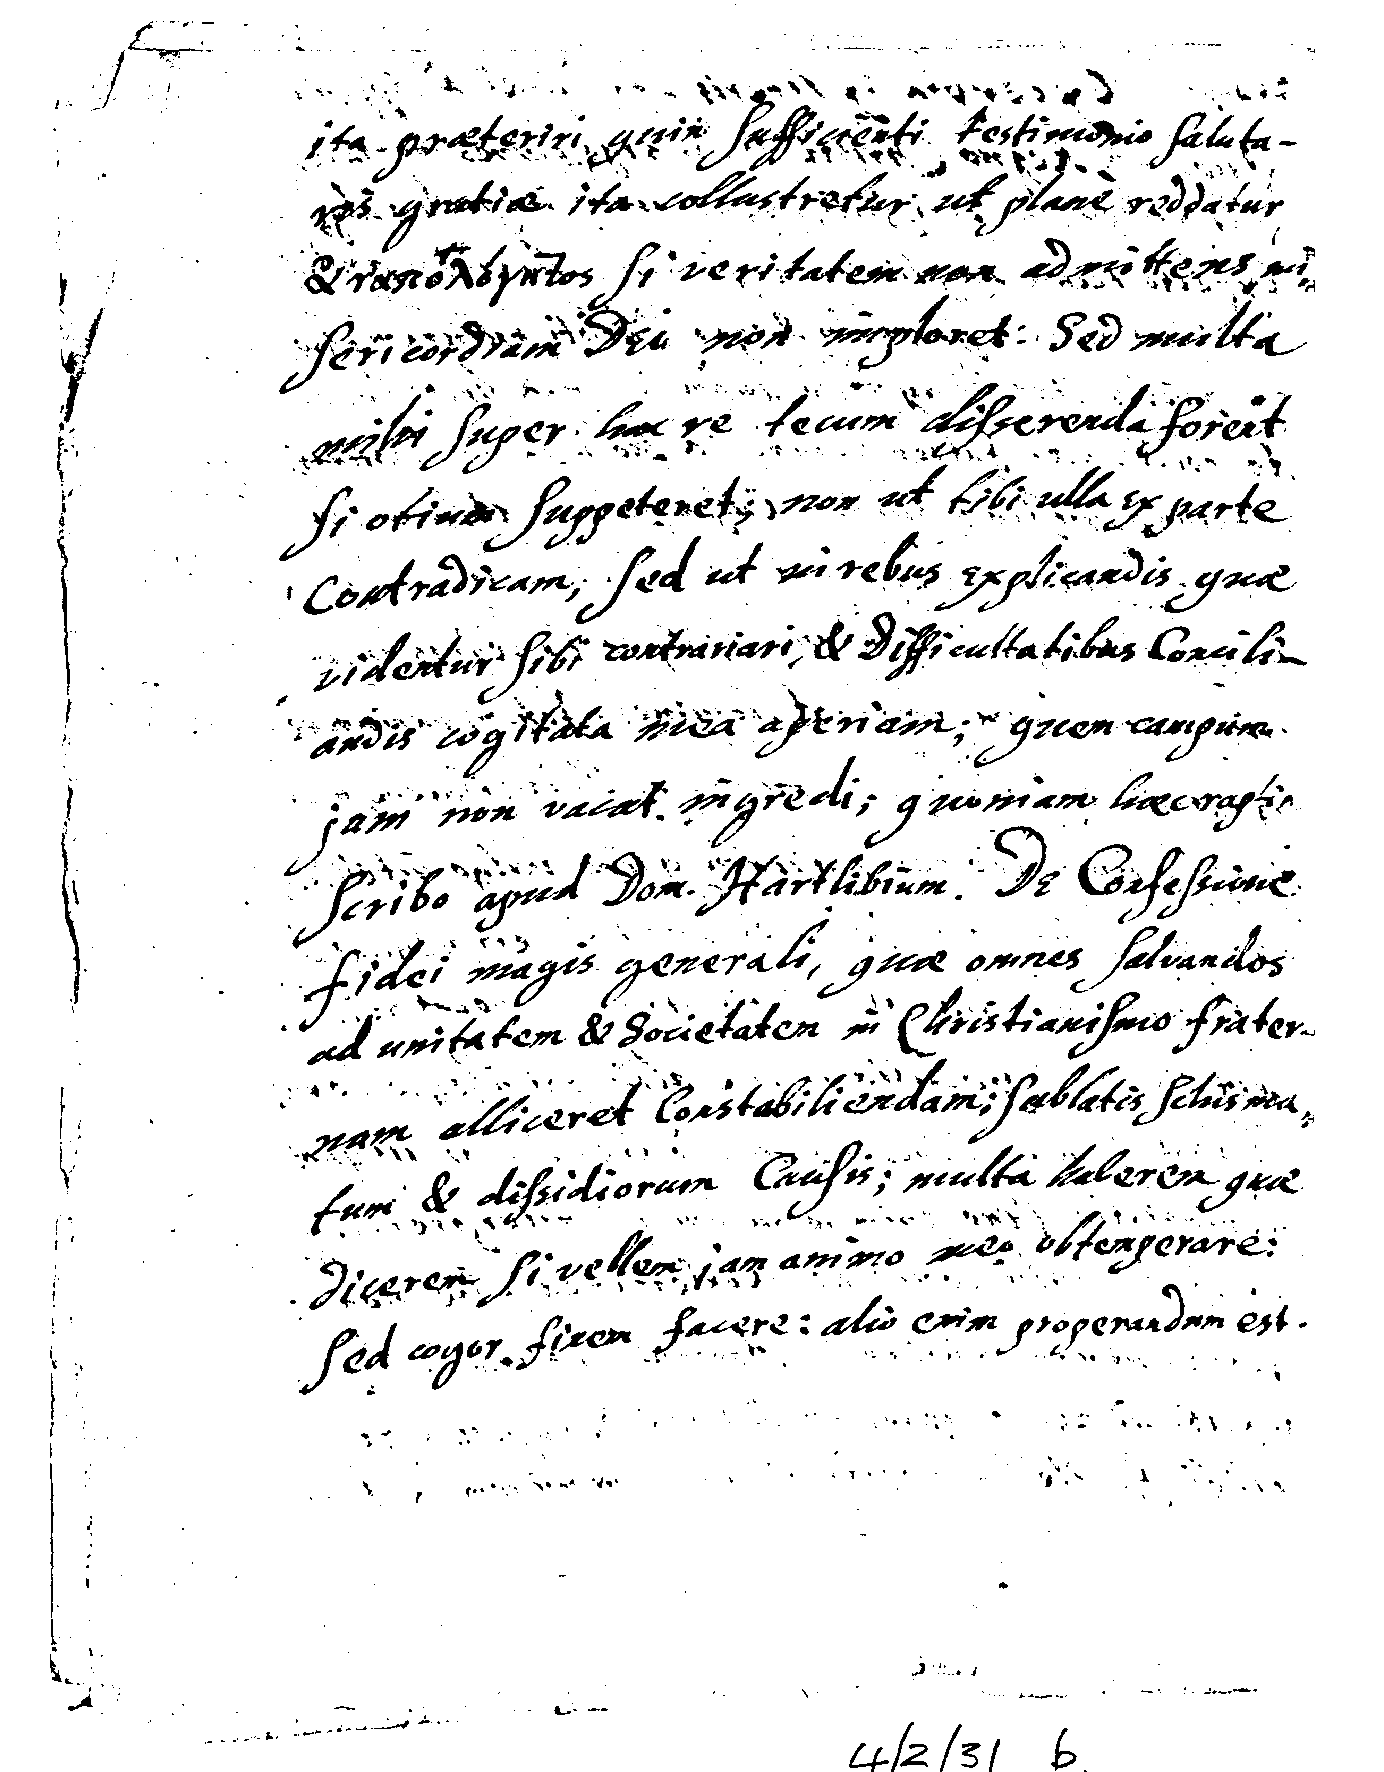 ita præteriri quin sufficienti testimonio saluta-
ris gratiæ ita collustretur ut planè reddatur
si veritatem non admittens mi„
sericordiam Dei non imploret: Sed multa
mihi super hac re tecum disserenda forent
si otium suppeteret; non ut tibi ulla ex parte
Contradicam, sed ut in rebus explicandis quæ
videntur sibi contrariari, & difficultatibus Concili-
andis cogitata mea aperiam; quem campum
jam non vacat ingredi; quoniam hæc raptim
scribo apud Dom. Hartlibium. De Confessione
fidei magis generali, quæ omnes salvandos
ad unitatem & Societatem in Christianismo frater-
nam alliceret Constabiliendam; sublatis schisma„
tum & dissidiorum Causis; multa haberem quæ
dicerem si vellem jam animo meo obtemperare:
Sed cogor finem facere: aliò enim properandum est.
4/2/31 b